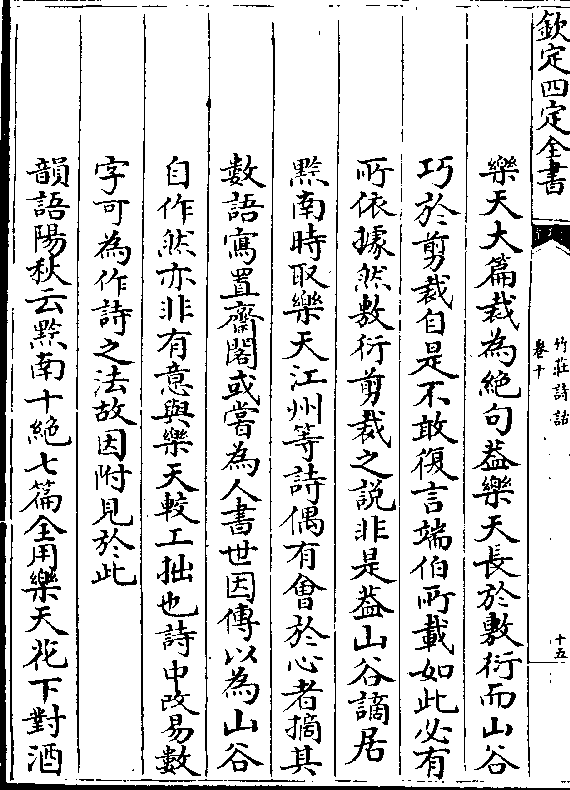 欽定四定全書
竹莊詩話
卷十
十五
樂天大篇裁為絶句葢樂天長於敷衍而山谷
巧於剪裁自是不敢復言端伯所載如此必有
所依據然敷衍剪裁之説非是葢山谷謫居
黔南時取樂天江州等詩偶有會於心者摘其
數語寫置齋閣或嘗為人書世因傳以為山谷
自作然亦非有意與樂天較工拙也詩中改易數
字可為作詩之法故因附見於此
韻語陽秋云黔南十絶七篇全用樂天花下對酒